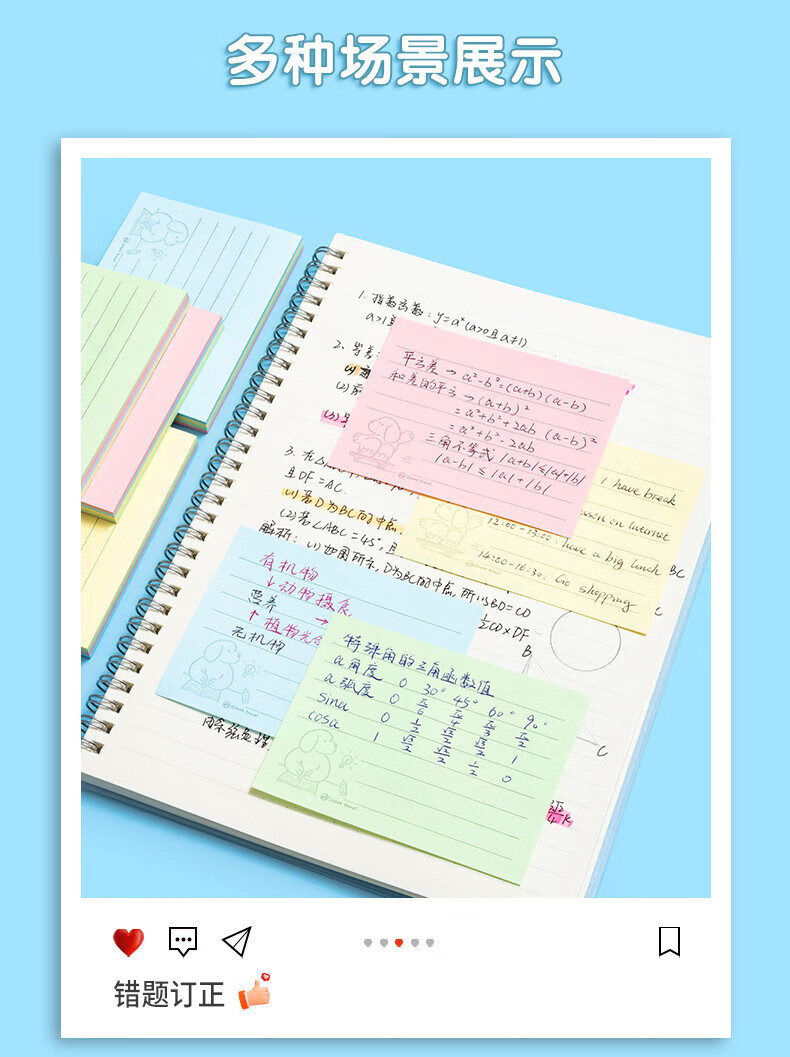 多种场景展示
1. 指数函数: y=aˣ (a>0且a≠1)
a>1
2、等差
(2)
平方差 → a²-b²=(a+b)(a-b)
和差的平方 → (a+b)²
=a²+2ab (a-b)²
=a²+b²-2ab
三角不等式 |a+b|≤|a|+|b|
|a-b|≤|a|+|b|
I have break
on Internet
12:00-13:00: have a big lunch
14:00-16:30: Go shopping
BC
3. 在
且DF=AC.
(1)若D为BC的中点,
(2)若∠ABC=45°, 且
解析: (1)如图所示, D为BC的中点, 所以BD=CD
½CD×DF
B
C
C
有机物
↓动物摄食
营养
↑植物光合
无机物
特殊角的三角函数值
α角度 0 30° 45° 60° 90°
α弧度 0 π/6 π/4 π/3 π/2
sinα 0 1/2 √2/2 √3/2 1
cosα 1 √3/2 √2/2 1/2 0
Green Travel
错题订正